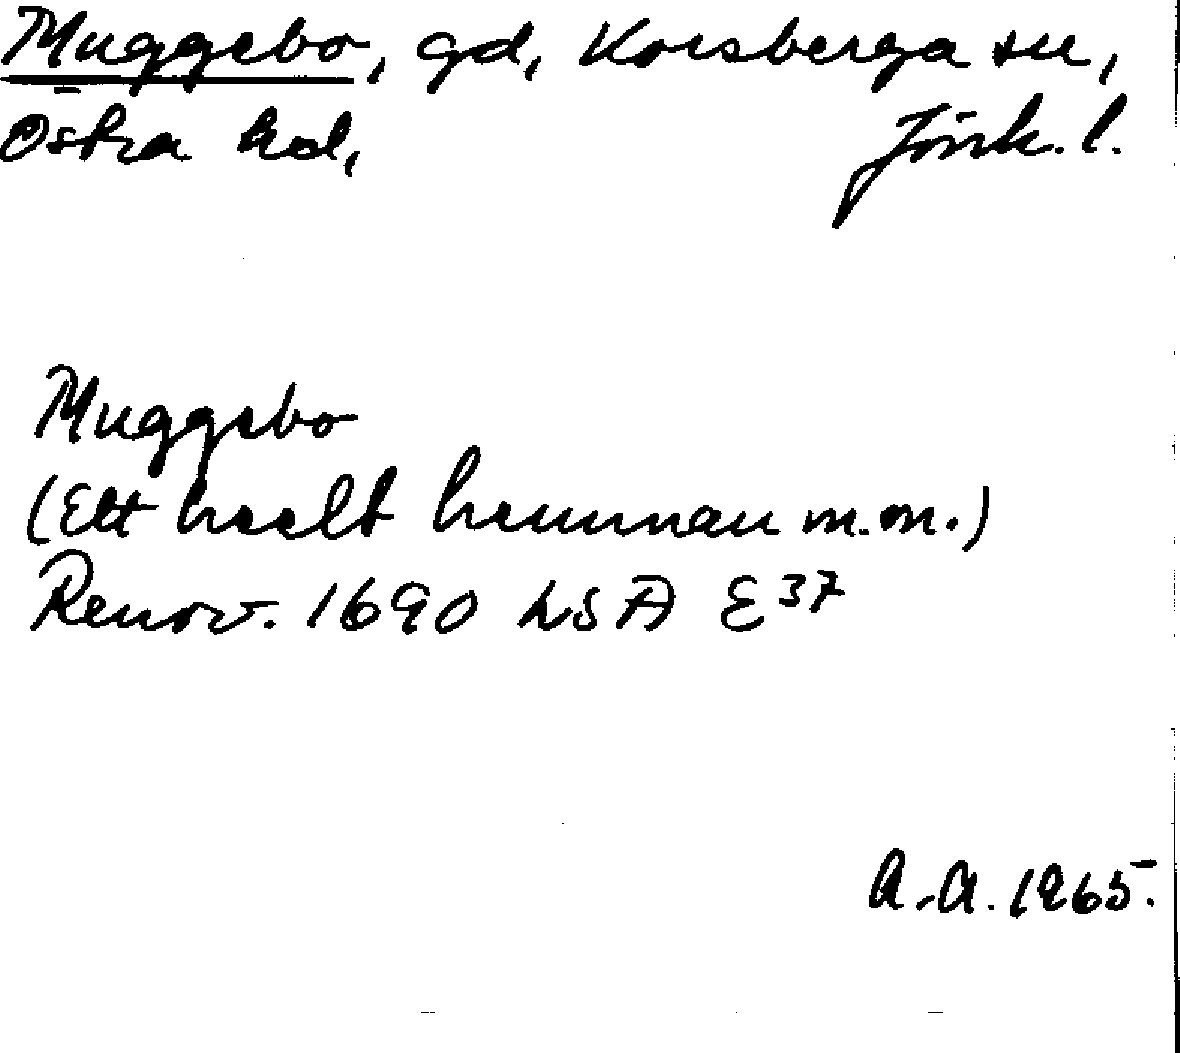 Muggebo, gd, Korsberga sn,
Östra hd, Jönk. l.
Muggebo
(Ett heelt hemman m.m.)
Renov. 1690 LSA E 37
A.-A. 1965.